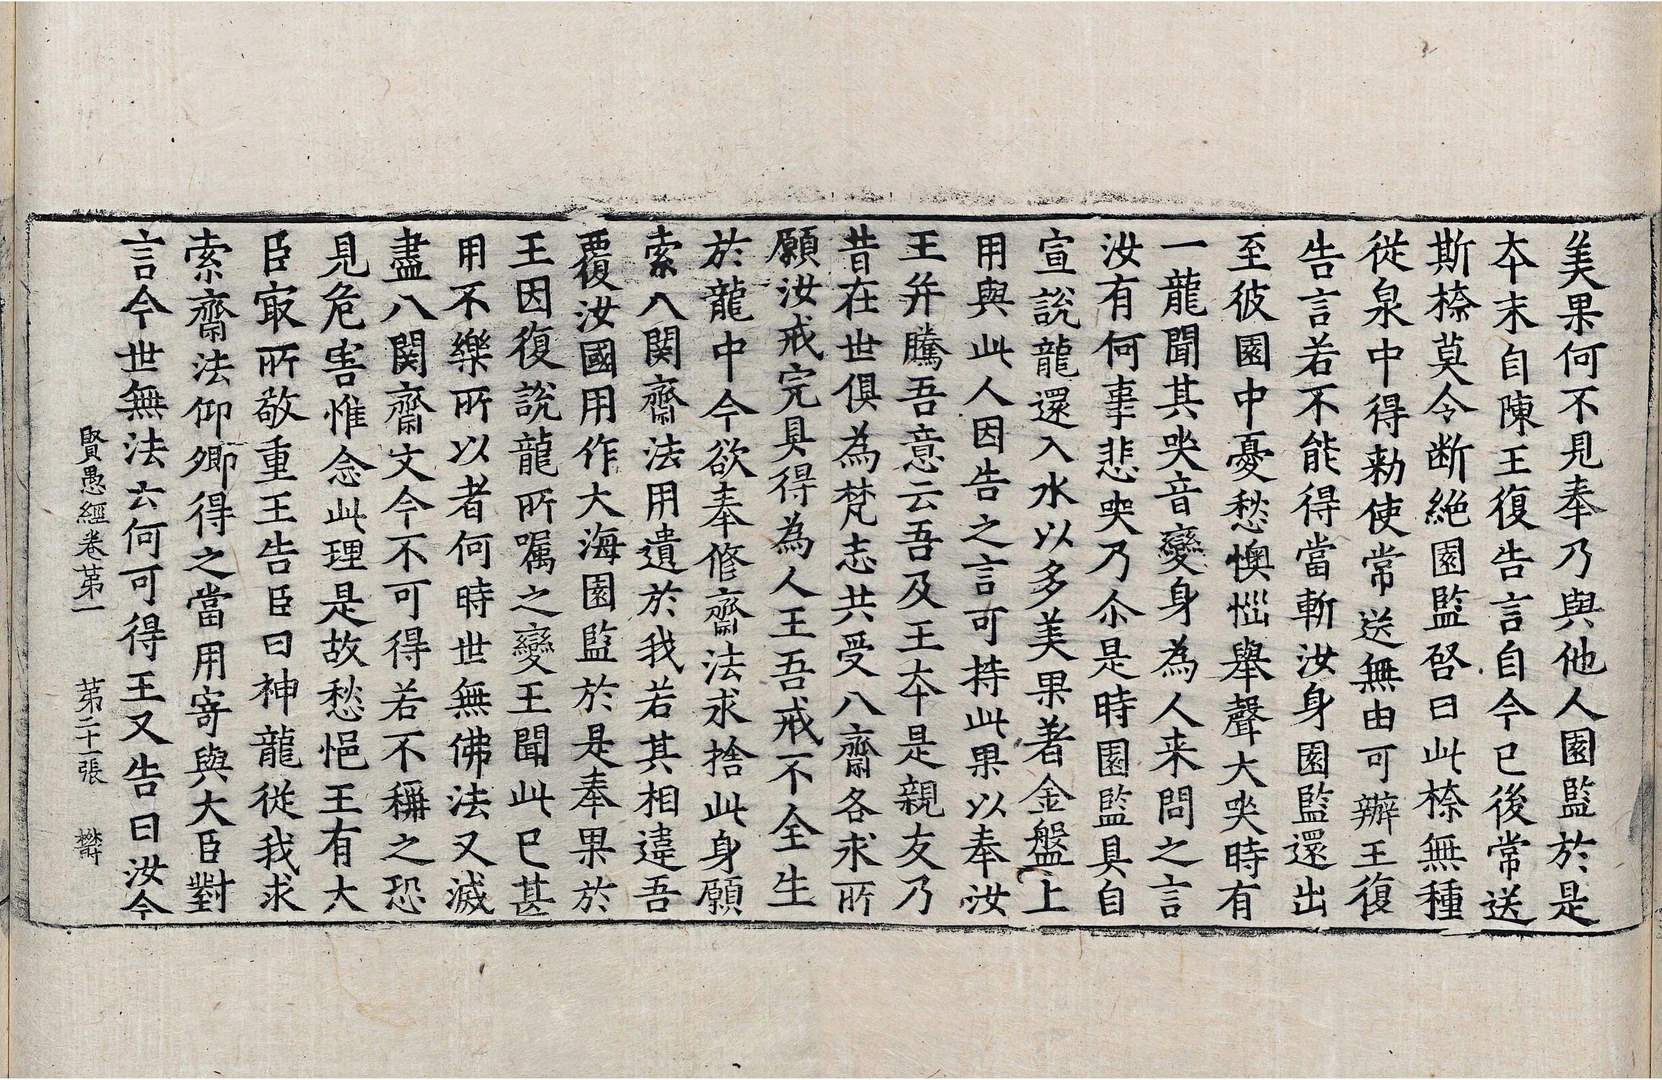 美果何不見奉乃與他人園監於是
夲末自陳王復告言自今已後常送
斯㮈莫令断絶園監啓曰此㮈無種
從泉中得勑使常送無由可辦王復
告言若不能得當斬汝身園監還出
至彼園中憂愁懊惱舉聲大哭時有
一龍聞其哭音變身為人来問之言
汝有何事悲哭乃尒是時園監具自
宣說龍還入水以多美果著金盤上
用與此人因告之言可持此果以奉汝
王并騰吾意云吾及王夲是親友乃
昔在世俱為梵志共受八齋各求所
願汝戒完具得為人王吾戒不全生
於龍中今欲奉修齋法求捨此身願
索八関齋法用遺於我若其相違吾
覆汝國用作大海園監於是奉果於
王因復說龍所嘱之變王聞此已甚
用不樂所以者何時世無佛法又滅
盡八関齋文今不可得若不稱之恐
見危害惟念此理是故愁悒王有大
臣㝡所敬重王告臣曰神龍從我求
索齋法仰卿得之當用寄與大臣對
言今世無法云何可得王又告曰汝今
賢愚經卷苐一 苐二十一張 欝